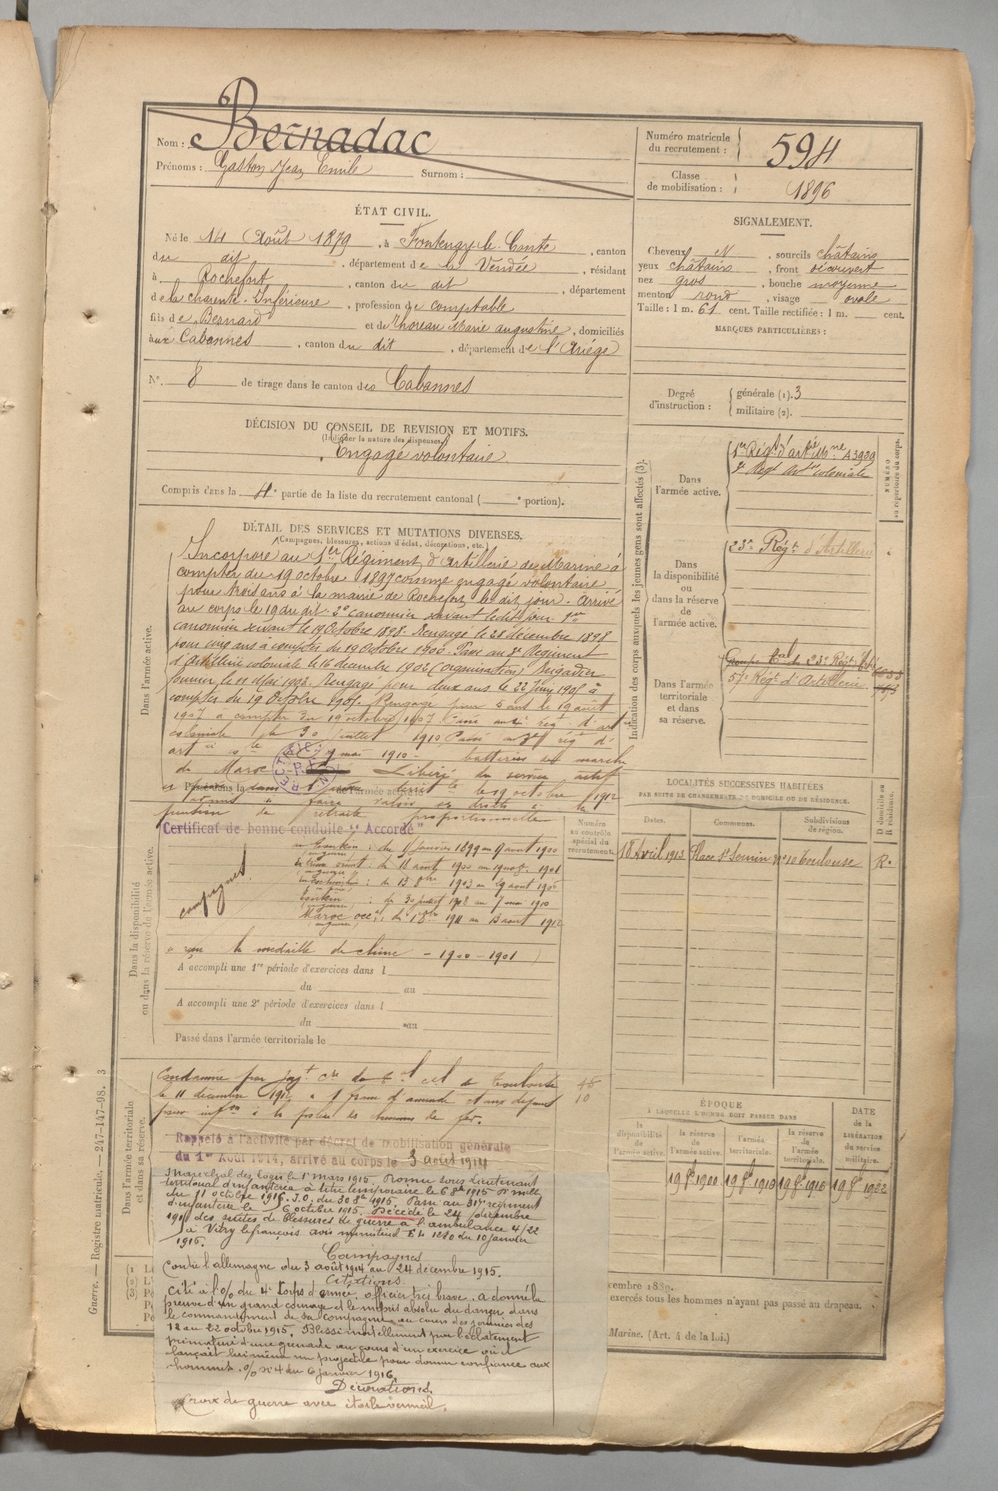 Nom : Bernadac
Prénoms : Gaston Jean Emile Surnom :
Numéro matricule du recrutement : 594
Classe de mobilisation : 1896
ÉTAT CIVIL.
Né le 14 Août 1879, à Fontenay le Comte, canton
du dit, département de la Vendée, résidant
à Rochefort, canton du dit, département
de la Charente-Inférieure, profession de comptable
fils de Bernard et de Thoreau Marie Augustine, domiciliés
à Cabannes, canton du dit, département de l'Ariège
N° 8 de tirage dans le canton des Cabannes
SIGNALEMENT.
Cheveux N, sourcils châtains
yeux châtains, front découvert
nez gros, bouche moyenne
menton rond, visage ovale
Taille : 1 m. 61 cent. Taille rectifiée : 1 m. cent.
MARQUES PARTICULIÈRES :
Degré d'instruction : générale (1). 3
militaire (2).
DÉCISION DU CONSEIL DE REVISION ET MOTIFS.
(Indiquer la nature des dispenses)
Engagé volontaire
Compris dans la 4e partie de la liste du recrutement cantonal ( e portion).
DÉTAIL DES SERVICES ET MUTATIONS DIVERSES.
(Campagnes, blessures, actions d'éclat, décorations, etc.)
Dans l'armée active.
Incorporé au 1er Régiment d'Artillerie de Marine à
compter du 19 octobre 1897 comme engagé volontaire
pour trois ans à la mairie de Rochefort le dit jour. Arrivé
au corps le 19 du dit. 2e canonnier servant le dit jour. 1er
canonnier servant le 19 Octobre 1898. Rengagé le 28 décembre 1898
pour cinq ans à compter du 19 Octobre 1900. Passé au 3e Régiment
d'Artillerie coloniale le 16 décembre 1902 (organisation) Brigadier
fourrier le 11 Mai 1903. Rengagé pour deux ans le 22 Juin 1905 à
compter du 19 Octobre 1905. Rengagé pour 5 ans le 19 août
1907 à compter du 19 octobre 1907. Passé au rég. d'art
coloniale le 30 juillet 1910. Passé au rég. d'
art mai 1910 - batteries de marche
du Maroc Libéré du service actif
le 19 octobre 1912
faire valoir ses droits à la
pension de retraite proportionnelle
Certificat de bonne conduite "Accordé"
Indication des corps auxquels les jeunes gens sont affectés (3).
Dans l'armée active.
1er Régt d'artie Mne A3909
3e Régt Artie coloniale
NUMÉRO au répertoire du corps.
Dans la disponibilité ou dans la réserve de l'armée active.
23e Régt d'Artillerie
Dans l'armée territoriale et dans sa réserve.
Groupe tal du 23e Régt
57e Régt d'Artillerie
LOCALITÉS SUCCESSIVES HABITÉES
PAR SUITE DE CHANGEMENTS DE DOMICILE OU DE RÉSIDENCE.
Dates. Communes. Subdivisions de région. D domicile ou R résidence.
18 Avril 1913 Place St Sernin n°10 Toulouse R.
Numéro au contrôle spécial du recrutement.
Dans la disponibilité ou dans la réserve de l'armée active.
Campagnes
du 9 janvier 1899 au 9 avril 1900
1900 au 1901
1903 au août 1905
1908 au 7 mai 1910
Maroc occ. 1911 au 13 août 1912
a reçu la médaille de Chine - 1900 - 1901
A accompli une 1re période d'exercices dans l
du au
A accompli une 2e période d'exercices dans l
du au
Passé dans l'armée territoriale le
Dans l'armée territoriale et dans sa réserve.
Condamné par jugt de Toulouse
le 11 décembre à 1 franc d'amende et aux dépens
pour infon à la police des chemins de fer.
Rappelé à l'activité par décret de mobilisation générale
du 1er Août 1914, arrivé au corps le 3 août 1914
Maréchal des logis le 1 mars 1915. Promu sous Lieutenant
territorial d'infanterie à titre temporaire le 6 8bre 1915 Dn mlle
du 11 octobre 1915. J.O. du 30 8bre 1915. Passé au régiment
d'infanterie le 6 octobre 1915. Décédé le 24 décembre
1915 des suites de blessures de guerre à l'ambulance 4/22
à Vitry le françois avis ministériel du 10 janvier
1916.
Campagnes
Contre l'allemagne du 3 août 1914 au 24 décembre 1915.
Citations
Cité à l'o/o du 4e Corps d'armée. officier très brave. a donné la
preuve d'un grand courage et le mépris absolu du danger dans
le commandement de sa compagnie au cours des journées des
12 au 22 octobre 1915. Blessé mortellement par l'éclatement
prématuré d'une grenade au cours d'un exercice où il
lançait lui même un projectile pour donner confiance aux
hommes. o/o n° 4 du 6 janvier 1916.
Décorations
Croix de guerre avec étoile vermeil.
ÉPOQUE
À LAQUELLE L'HOMME DOIT PASSER DANS
la disponibilité de l'armée active. la réserve de l'armée active. l'armée territoriale. la réserve de l'armée territoriale.
DATE de la LIBÉRATION du service militaire.
19 8bre 1900 19 8bre 1910 19 8bre 1916 19 8bre 1922
cembre 1889.
exercés tous les hommes n'ayant pas passé au drapeau.
Marine. (Art. 4 de la Loi.)
Guerre. — Registre matricule. — 247-147-98. 3